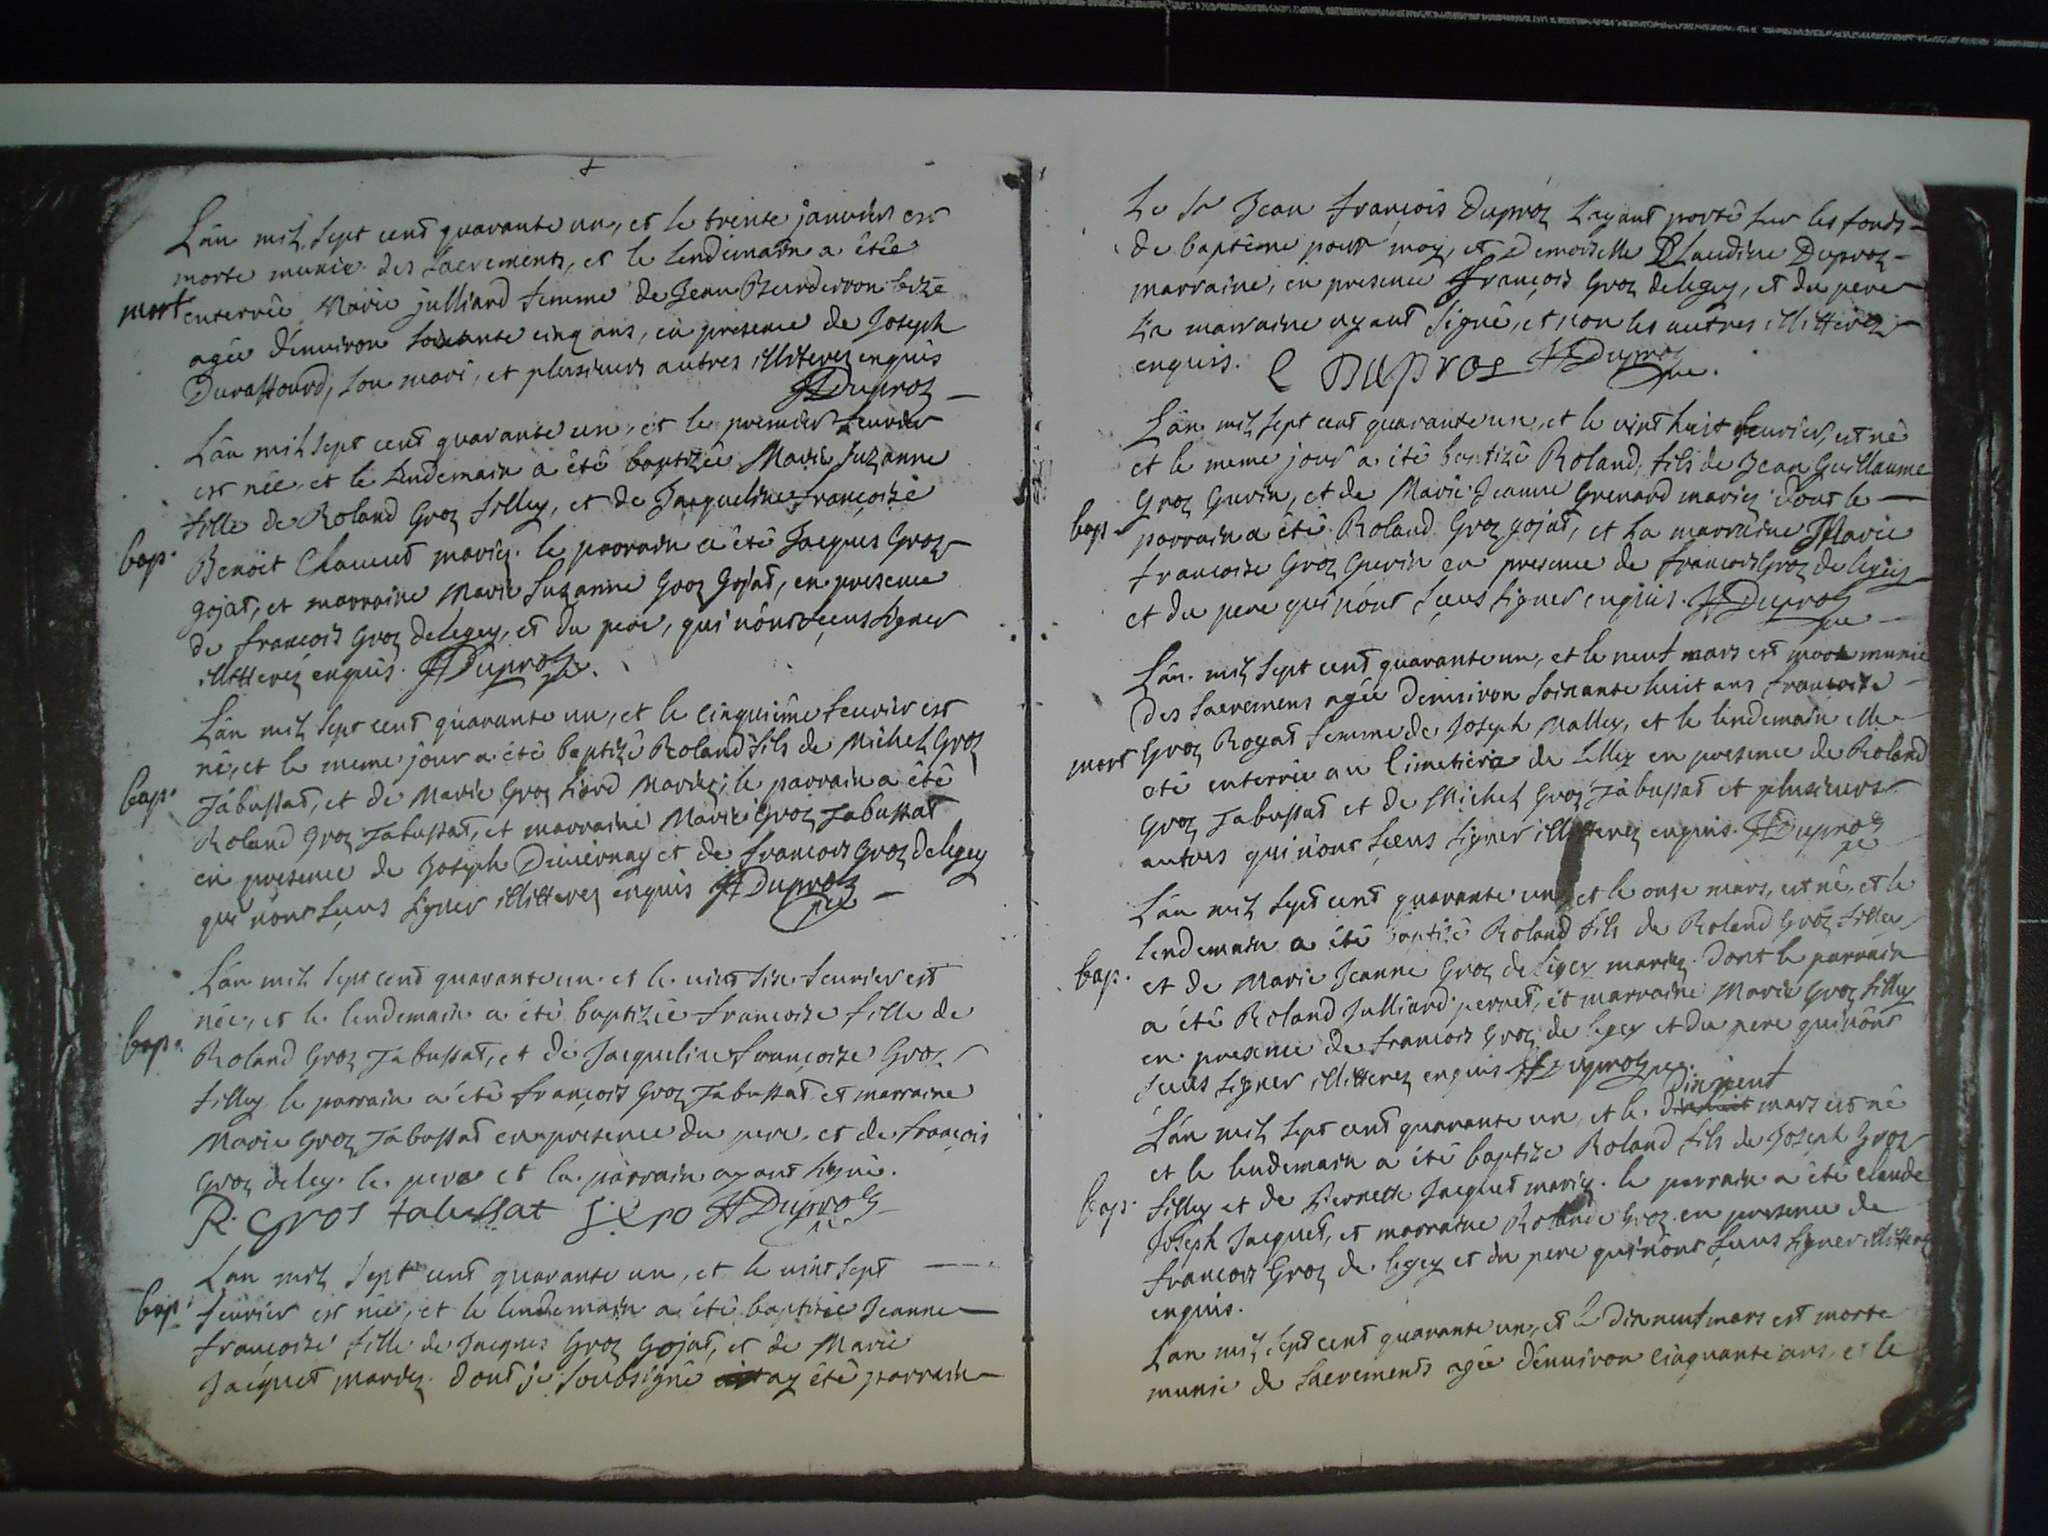 Lân mil sept cent quarante un, et le trente janvier est
morte munie des sacrements, et le lendemain a êtêe
mort
enterrée Marie julliard femme de Jean
agée d'environ soixante cinq ans, en présence de Joseph
Duraffourd, son mari, et plusieurs autres illiterez enquis
Duproz
Lân mil sept cent quarante un, et le premier feuvrier
est née et le lendemain a êtê baptizée Marie Suzanne
fille de Roland Groz filley, et de Jacqueline françoise
bap.
Benoit mariez. le parrain a êtê Jacques Groz
gojat, et marraine Marie Suzanne Groz Gojat, en presence
de francois Groz delegey, et du pere, qui n'ont sçeus signer
illitterez enquis. Duproz
Lân mil sept cent quarante un, et le cinquiême feuvrier est
né, et le meme jour a été baptizê Roland fils de Michel Groz
bap.
Jabussat, et de Marie Groz mariez; le parrain a êtê
Roland Groz Jabussat, et marraine Marie Groz Jabussat
en presence de Joseph et de francois Groz delegey
qui n'ont sçeus signer illitterez enquis Duproz
Lân mil sept cent quarante un. et le vint six feuvrier est
née, et le lendemain a étê baptizée francoise fille de
bap.
Roland Groz Jabussat, et de Jacqueline françoise Groz
filley le parrain a été françois Groz Jabussat et marraine
Marie Groz Jabussat en presence du pere, et de françois
Groz deley. le pere et le parrain ayant signé.
R. Gros tabussat Duproz
Lan mil sept cent quarante un, et le vint sept
bap.
feuvrier est née, et le lendemain a été baptizée Jeanne
françoise fille de Jacques Groz Gojat, et de Marie
Jacquet mariez. dont je soubsignê ay êtê parrain
Le Sr Jean françois Duproz l'ayant portê sur les fonds
de baptême pour moy, et Demoiselle Claudine Duproz
marraine, en presence françois Groz delegey, et du pere
La marraine ayant signê, et non les autres illitterez
enquis. C Dupros Duproz
Lân mil sept cent quarante un, et le vint huit feuvrier, est nê
et le meme jour a été baptizé Roland, fils de Jean Guillaume
Groz Gurin, et de Marie Jeanne Grenard mariez dont le
bap.
parrain a êtê Roland Groz gojat, et la marraine Marie
francoise Groz Gurin en presence de francois Groz delegey
et du pere qui n'ont sçeus signer enquis. Duproz
Lân mil sept cent quarante un, et le neuf mars est morte munie
des sacremens agée denviron soixante huit ans francoise
mort
Groz Royat femme de Joseph Malley, et le lendemain elle
été enterrée au Cimetiere de Lellex en presence de Roland
Groz Jabussat et de Michel Groz Jabussat et plusieurs
autres qui n'ont sçeus signer illitterez enquis. Duproz
Lân mil sept cent quarante un et le onze mars, est nê, et le
lendemain a été baptizê Roland fils de Roland Groz filley
bap.
et de Marie Jeanne Groz delegey mariez. Dont le parrain
a êtê Roland Julliard perret, et marraine Marie Groz filley
en presence de francois Groz de legey et du pere qui n'ont
sçeus signer illitterez enquis Duproz
Dixneuf
Lân mil sept cent quarante un, et le mars est né
et le lendemain a été baptize Roland fils de Joseph Groz
bap.
filley et de Pernette Jacquet mariez. le parrain a êtê claude
Joseph Jacquet, et marraine Rolande Groz en presence de
francois Groz de legey et du pere qui n'ont sçeus signer illitterez
enquis.
Lan mil sept cent quarante un, et le Dixneuf mars est morte
munie de sacrements agée d'environ cinquante ans, et le